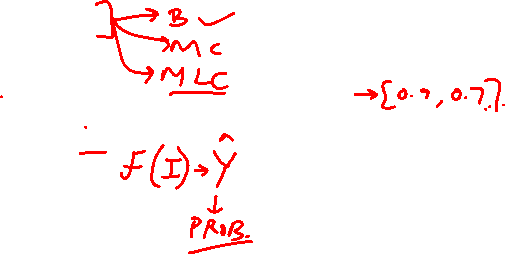 B ✓
MC
MLC
→ [0.9, 0.7]
- F(I) → Ŷ
↓
PROB.